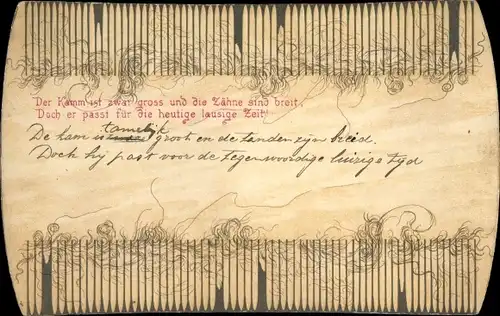 Der Kamm ist zwar gross und die Zähne sind breit
Doch er passt für die heutige lausige Zeit!
tamelijk
De kam groot en de tanden zijn breed.
Doch hij past voor de tegenwoordige luizige tijd